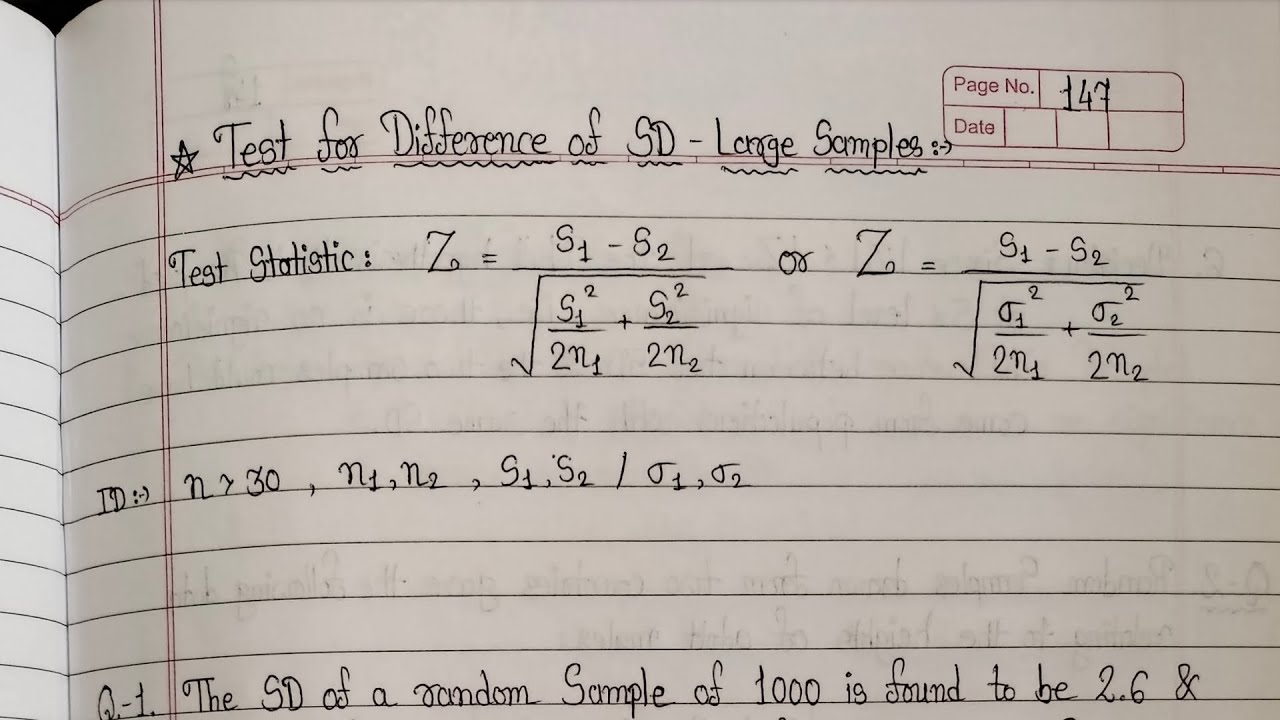 Page No. 147
Date
☆ Test for Difference of SD - Large Samples :→
Test Statistic : Z = (S₁ - S₂) / √(S₁²/2n₁ + S₂²/2n₂) or Z = (S₁ - S₂) / √(σ₁²/2n₁ + σ₂²/2n₂)
ID :→ n > 30 , n₁, n₂ , S₁, S₂ / σ₁, σ₂
Q.-1. The SD of a random Sample of 1000 is found to be 2.6 &